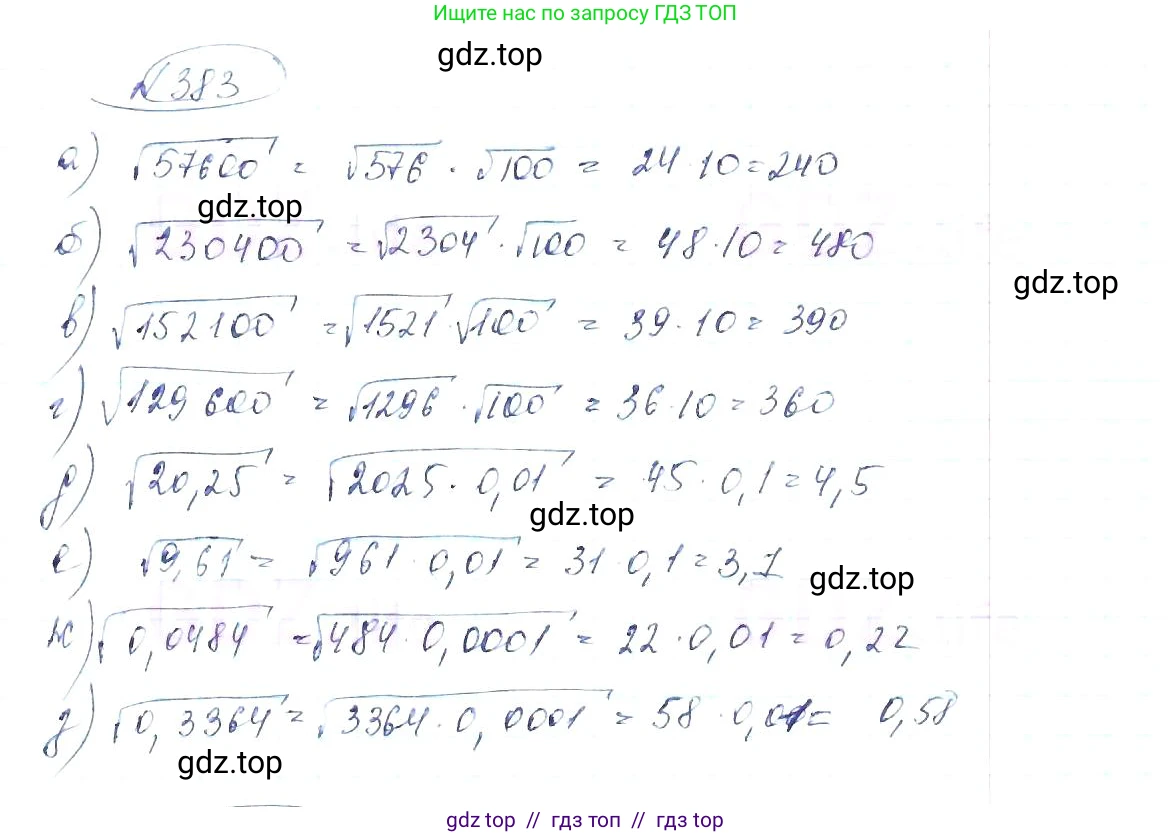 Ищите нас по запросу ГДЗ ТОП
gdz.top
№383
а) √57600 = √576 · √100 = 24 · 10 = 240
gdz.top
б) √230400 = √2304 · √100 = 48 · 10 = 480
gdz.top
в) √152100 = √1521 · √100 = 39 · 10 = 390
г) √129600 = √1296 · √100 = 36 · 10 = 360
д) √20,25 = √2025 · 0,01 = 45 · 0,1 = 4,5
gdz.top
е) √9,61 = √961 · 0,01 = 31 · 0,1 = 3,1
gdz.top
ж) √0,0484 = √484 · 0,0001 = 22 · 0,01 = 0,22
з) √0,3364 = √3364 · 0,0001 = 58 · 0,01 = 0,58
gdz.top
gdz топ // гдз топ // гдз top